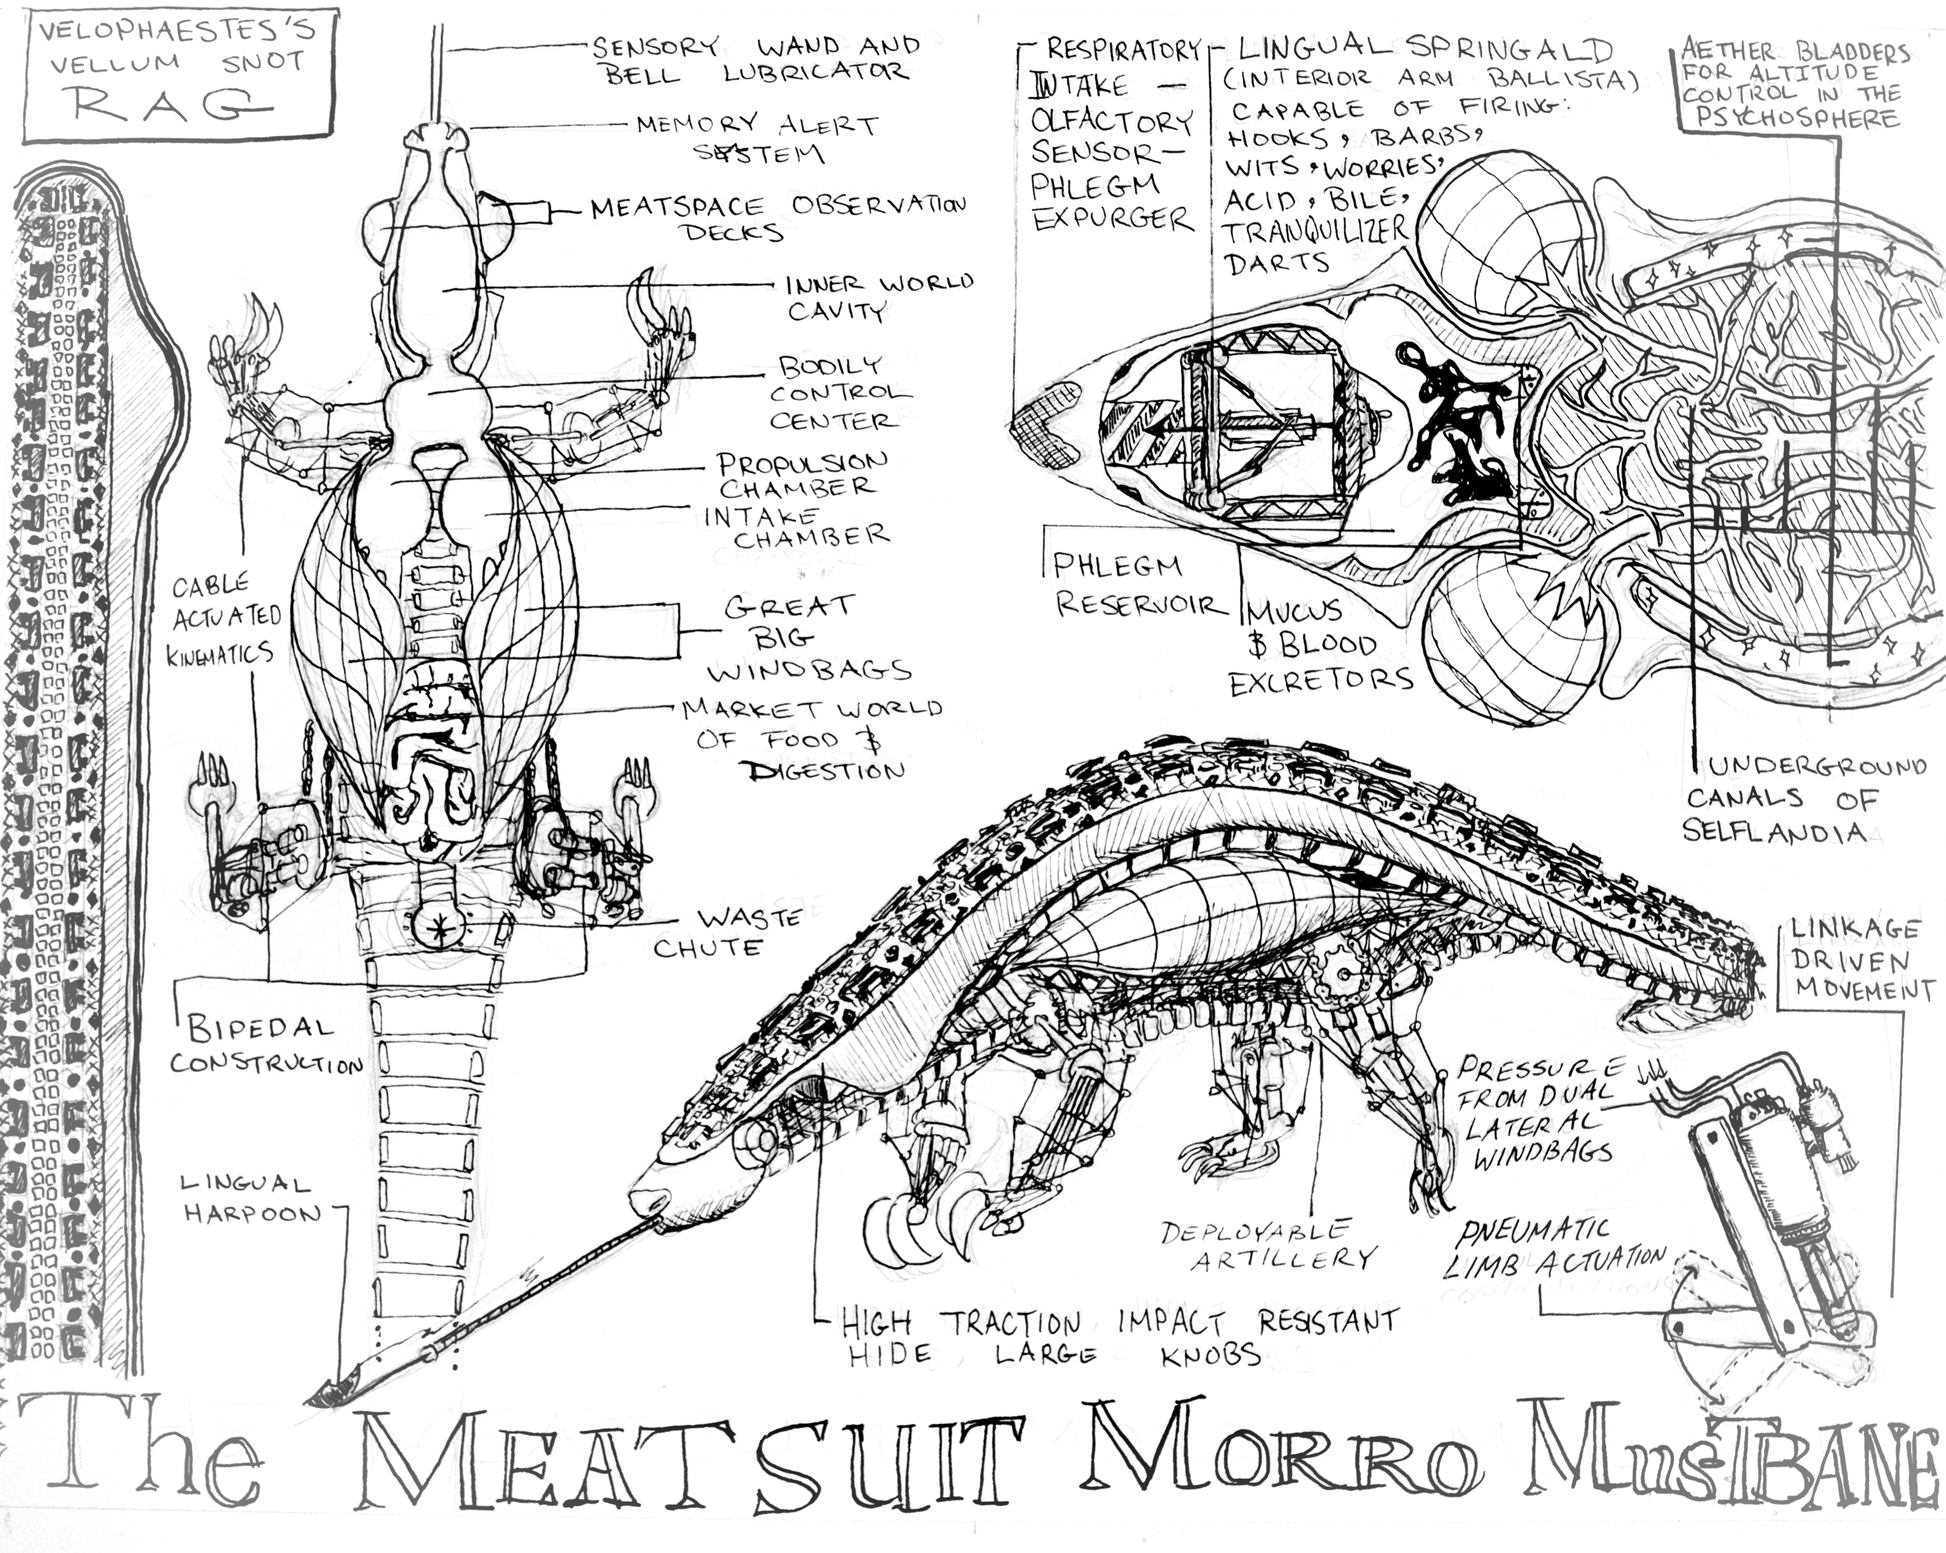 VELOPHAESTES'S
VELLUM SNOT
RAG
SENSORY WAND AND
BELL LUBRICATOR
MEMORY ALERT
SYSTEM
MEATSPACE OBSERVATION
DECKS
INNER WORLD
CAVITY
BODILY
CONTROL
CENTER
PROPULSION
CHAMBER
INTAKE
CHAMBER
CABLE
ACTUATED
KINEMATICS
GREAT
BIG
WINDBAGS
MARKET WORLD
OF FOOD &
DIGESTION
WASTE
CHUTE
BIPEDAL
CONSTRUCTION
LINGUAL
HARPOON
RESPIRATORY
INTAKE —
OLFACTORY
SENSOR —
PHLEGM
EXPURGER
LINGUAL SPRINGALD
(INTERIOR ARM BALLISTA)
CAPABLE OF FIRING:
HOOKS, BARBS,
WITS, WORRIES,
ACID, BILE,
TRANQUILIZER
DARTS
AETHER BLADDERS
FOR ALTITUDE
CONTROL IN THE
PSYCHOSPHERE
PHLEGM
RESERVOIR
MUCUS
& BLOOD
EXCRETORS
UNDERGROUND
CANALS OF
SELFLANDIA
LINKAGE
DRIVEN
MOVEMENT
PRESSURE
FROM DUAL
LATERAL
WINDBAGS
PNEUMATIC
LIMB ACTUATION
DEPLOYABLE
ARTILLERY
HIGH TRACTION IMPACT RESISTANT
HIDE LARGE KNOBS
The MEATSUIT MORRO MusTBANE